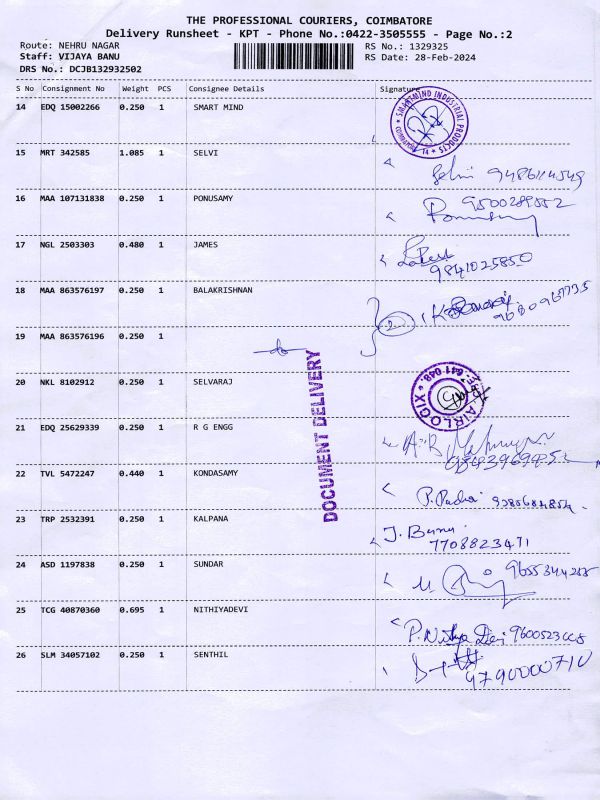 THE PROFESSIONAL COURIERS, COIMBATORE
Delivery Runsheet - KPT - Phone No.:0422-3505555 - Page No.:2
Route: NEHRU NAGAR RS No.: 1329325
Staff: VIJAYA BANU RS Date: 28-Feb-2024
DRS No.: DCJB132932502
S No Consignment No Weight PCS Consignee Details Signature
14 EDQ 15002266 0.250 1 SMART MIND
SMARTMIND INDUSTRIAL PRODUCTS
15 MRT 342585 1.085 1 SELVI
Selvi
16 MAA 107131838 0.250 1 PONUSAMY
9500289552
17 NGL 2503303 0.480 1 JAMES
9841025850
18 MAA 863576197 0.250 1 BALAKRISHNAN
2
19 MAA 863576196 0.250 1
20 NKL 8102912 0.250 1 SELVARAJ
AIRLOGIX
DOCUMENT DELIVERY
21 EDQ 25629339 0.250 1 R G ENGG
22 TVL 5472247 0.440 1 KONDASAMY
P. Padma
23 TRP 2532391 0.250 1 KALPANA
J. Banu
7708823471
24 ASD 1197838 0.250 1 SUNDAR
25 TCG 40870360 0.695 1 NITHIYADEVI
P. Nitya Devi
26 SLM 34057102 0.250 1 SENTHIL
9790000710